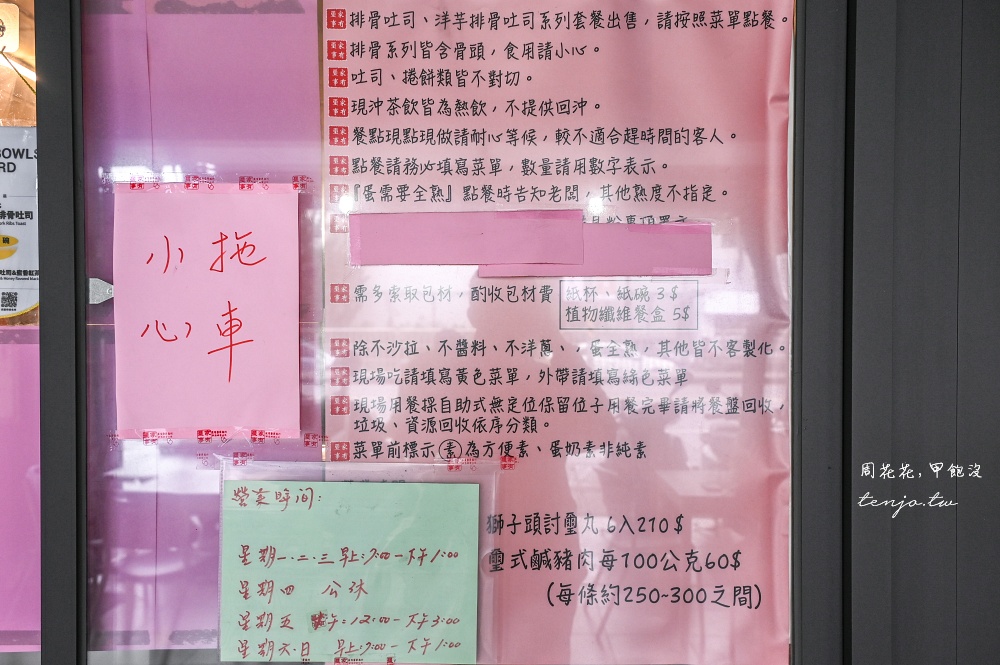 排骨吐司、洋芋排骨吐司系列套餐出售，請按照菜單點餐。
排骨系列皆含骨頭，食用請小心。
吐司、捲餅類皆不對切。
現沖茶飲皆為熱飲，不提供回沖。
餐點現點現做請耐心等候，較不適合趕時間的客人。
點餐請務必填寫菜單，數量請用數字表示。
『蛋需要全熟』點餐時告知老闆，其他熟度不指定。
需多索取包材，酌收包材費
紙杯、紙碗 3$
植物纖維餐盒 5$
除不沙拉、不醬料、不洋蔥、，蛋全熟，其他皆不客製化。
現場吃請填寫黃色菜單，外帶請填寫綠色菜單
現場用餐採自助式無定位保留位子用餐完畢請將餐盤回收，
垃圾、資源回收依序分類。
菜單前標示素為方便素、蛋奶素非純素
獅子頭討璽丸 6入210$
璽式鹹豬肉每100公克60$
(每條約250~300之間)
小心
拖車
營業時間：
星期一.二.三 早上:7:00-下午1:00
星期四 公休
星期五 午:12:00-下午3:00
星期六.日 早上:7:00-下午1:00
BOWLS
排骨吐司
周花花，甲飽沒
tenjo.tw